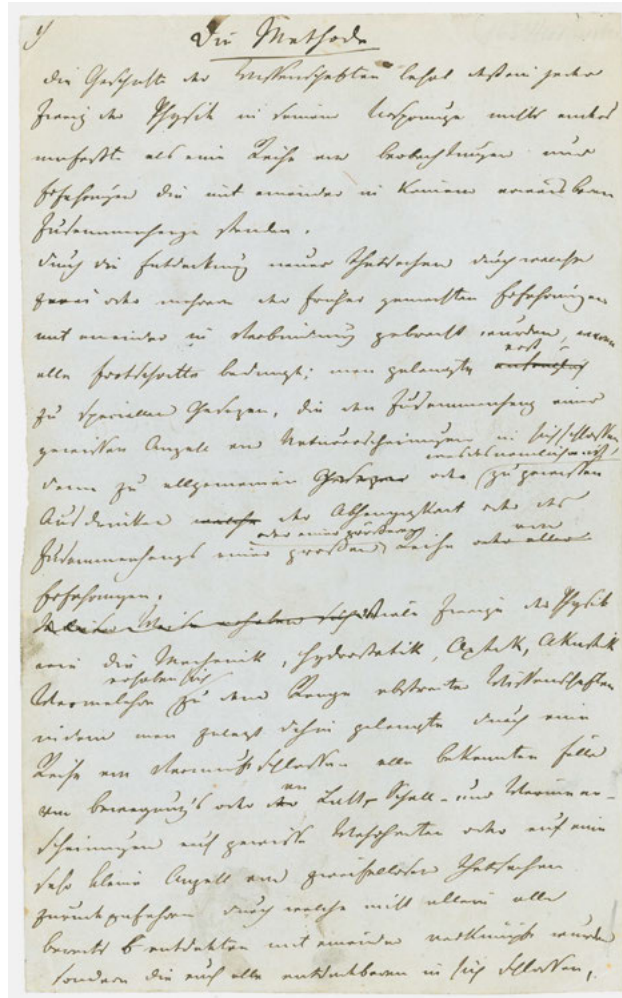 1/
Die Methode
Die Geschichte der Wissenschaften lehrt dass ein jeder
Zweig der Physik in seinem Ursprunge nichts anders
umfasste als eine Reihe von Beobachtungen und
Erfahrungen die mit einander in keinem
Zusammenhange standen.
Durch die Entdeckung neuer Thatsachen durch welche
zwei oder mehrere der früher gemachten Erfahrungen
mit einander in Verbindung gebracht wurden, waren
alle Fortschritte bedingt; man gelangte
erst
zu speciellen Gesetzen, die den Zusammenhang einer
gewissen Anzahl von Naturerscheinungen in sich schlossen
dann zu allgemeinen Gesetzen oder (zu gewissen
Ausdrücken welche der Abhängigkeit oder des
oder einer größeren
Zusammenhangs einer großen Reihe oder aller
von
Erfahrungen.
Zweige der Physik
wie die Mechanik, Hydrostatik, Optik, Akustik
erhoben sich
Wärmelehre zu dem Range abstracter Wissenschaften
indem man zuletzt dahin gelangte durch eine
Reihe von Vernunftschlüssen alle bekannten Fälle
von
von Bewegung's oder der Licht, Schall- und Wärme er-
scheinungen auf gewisse Wahrheiten oder auf eine
sehr kleine Anzahl von zweifellosen Thatsachen
zurückzuführen durch welche nicht allein alle
bereits entdekten mit einander verknüpft wurden
sondern die auch alle entdekbaren in sich schlossen,